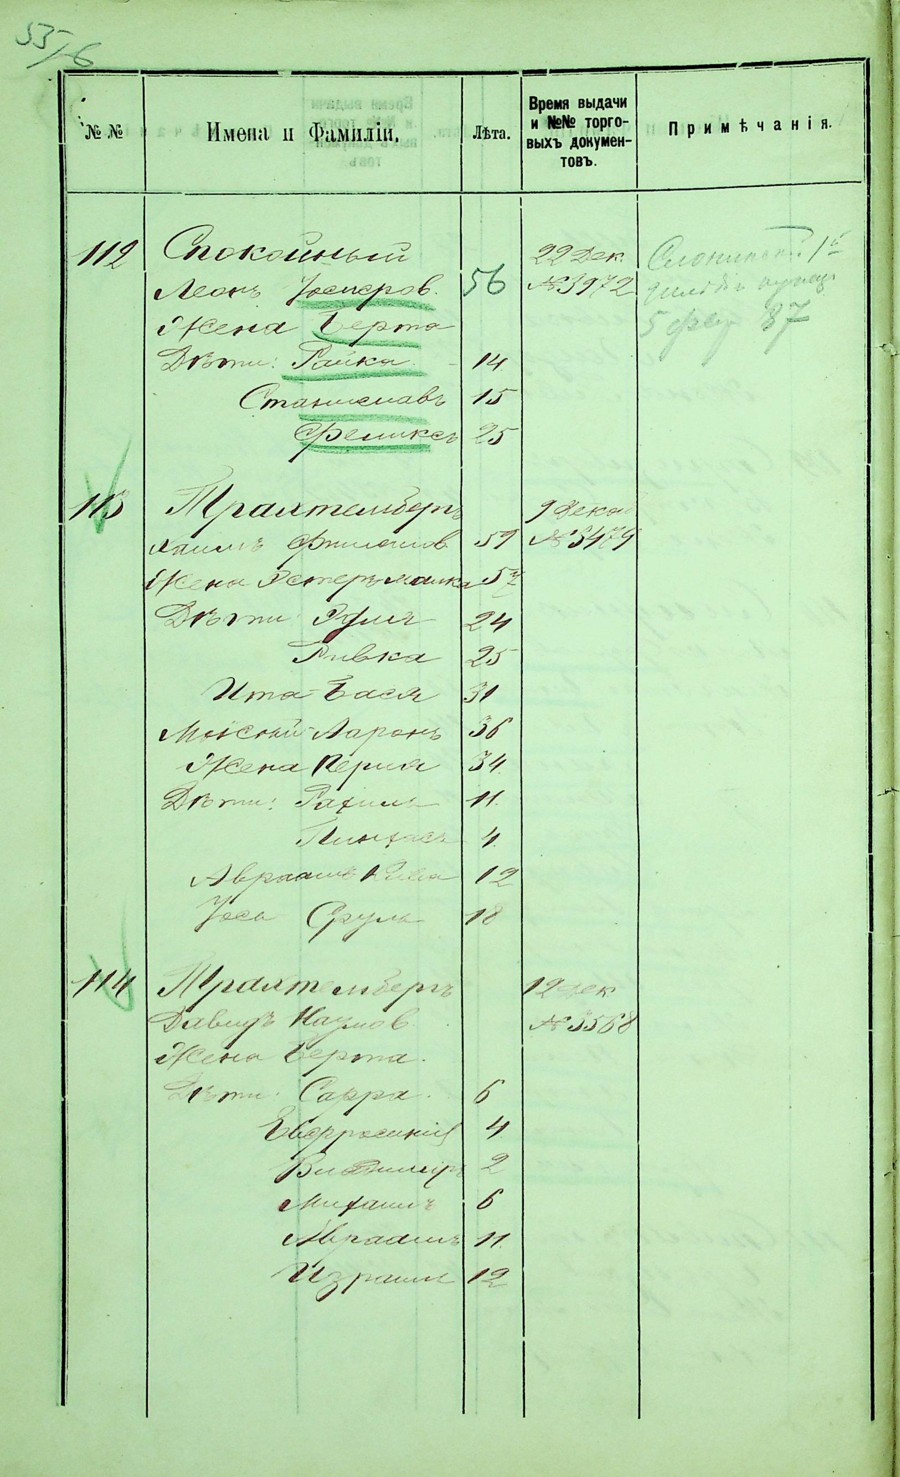 № №
Имена и Фамиліи.
Лѣта.
Время выдачи
и №№ торго-
выхъ докумен-
товъ.
Примѣчанія.
112 Спокойный 22 Дек
Леонъ 56 №3972
Жена Берта 5 87
Дѣти: Райка 14
Станиславъ 15
Феликсъ 25
113 Трахтембергъ 9 Дека
Хаимъ 59 №3479
Жена Эстеръ Малка
Дѣти 24
Ривка 25
Ита-Бася 31
Ааронъ 36
Жена Перля 34
Дѣти: Рахиль 11
Пинхасъ 4
Авраамъ 12
Сруль 18
114 Трахтембергъ 12 Дек
Давидъ Наумов №3568
Жена Берта.
Дѣти: Сарра. 6
Евфросинія 4
Владимиръ 2
Михаилъ 6
Авраамъ 11
Израиль 12